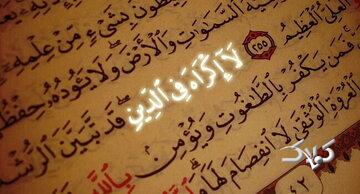 يطون بشىء من علمه
السموات والأرض ولا يئوده حفظهما
العلى العظيم ٢٥٥ لا إكراه فى الدين قد تبين الرشد
فمن يكفر بالطغوت ويؤمن بالله
العروة الوثقى لا انفصام لها